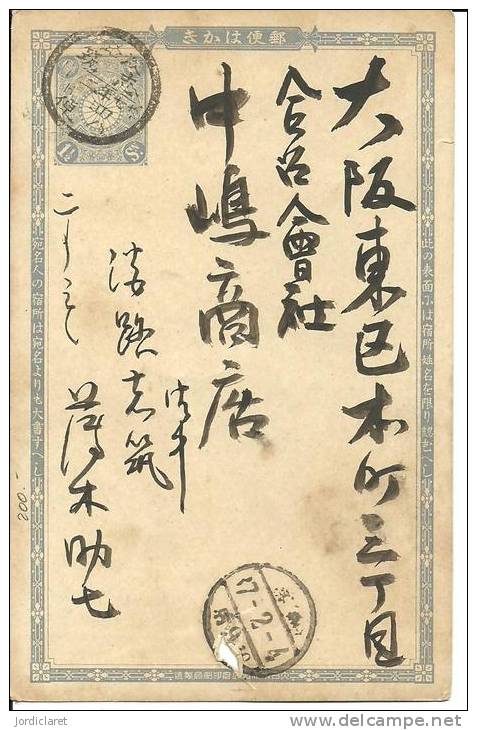 郵便はかき
大阪東区本町三丁目
合名會社
中嶋商店
淡路志筑
薄木助七
此の表面には宿所姓名を限り認むへし
宛名人の宿所は宛名よりも大書すへし
1½ Sn
17-2-4
200.-
jordiclaret
www.delcampe.net